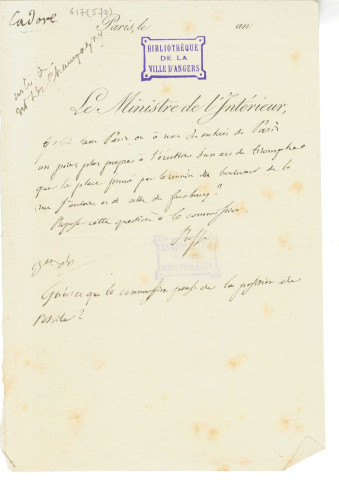 Cadore
617(570)
note de
Mr de Champagny
Paris, le an
BIBLIOTHÈQUE
DE LA
VILLE D'ANGERS
Le Ministre de l'Intérieur,
dans Paris ou à une des entrées de Paris
un point plus propre à l'érection d'un arc de triomphe
que la place formé par la réunion des boulevards de la
rue St antoine et de celle du faubourg?
Proposer cette question à la commission
Qu'est ce que la commission pense de la position de
l'étoile?